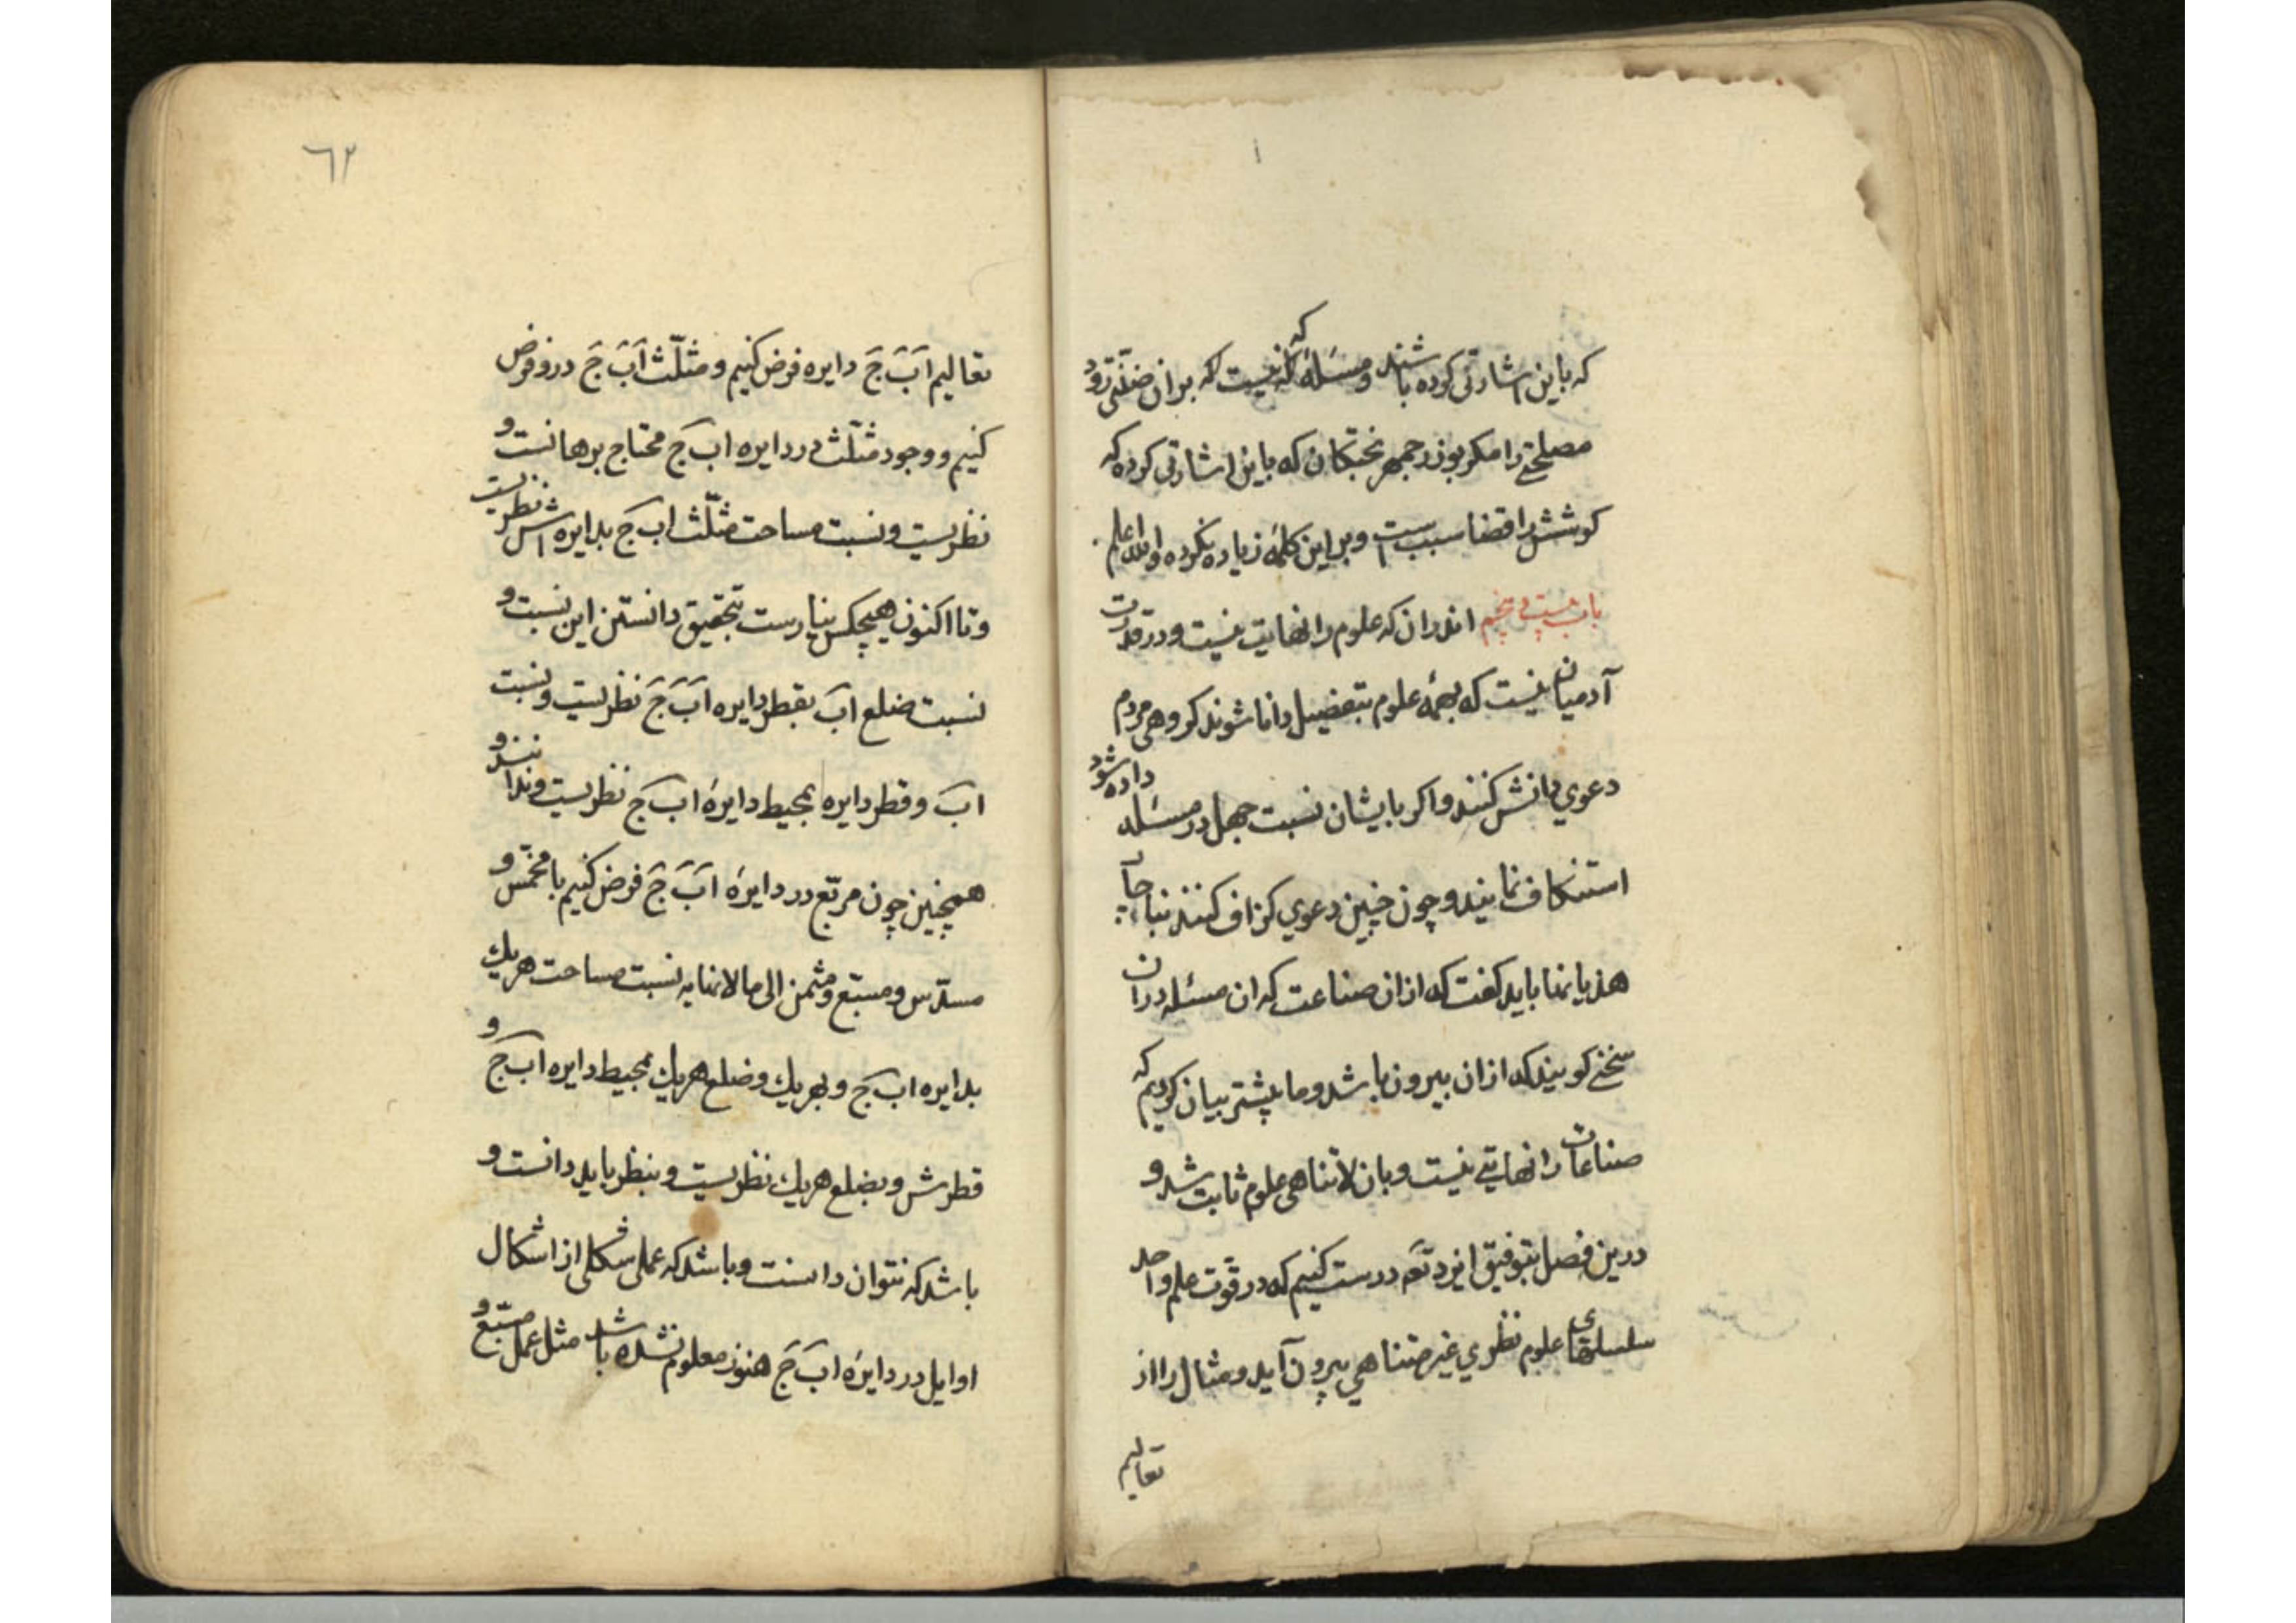 که باین اشارتی کرده باشند و مسئله که نیست که بران ضنّتی رود
مصلحتی را مکر بوزرجمهر بختکان که باین اشارتی کرده که
کوشش را قضا سببست و بر این کلمه زیاده نکرده والله اعلم
باب بیست و پنجم اندران که علوم را نهایت نیست و در قدرت
آدمیان نیست که بهمه علوم بتفضیل دانا شوند کروهی مردم
دعوی دانش کنند و اکر بایشان نسبت جهل در مسئله داده شود
استنکاف نمایند و چون چنین دعوی کزاف کنند بناچار
هذیانها باید کفت که ازان صناعت که ان مسئله دران
سخن کویند که ازان بیرون باشد و ما پیشتر بیان کردیم که
صناعات را نهایتی نیست و بان لاتناهی علوم ثابت شد و
درین فصل بتوفیق ایزد تعَ درست کنیم که در قوّت علم واحد
سلسلهای علوم نظری غیر متناهی بیرون آید و مثال را از
تعالیم
٦٢
تعالیم اَبَ جَ دایره فرض کنیم و مثلّث اَبَ جَ درو فرض
کنیم و وجود مثلّث در دایره اب جَ محتاج برهانست و
نظریست و نسبت مساحت مثلّث اب جَ بدایره اش نظریست
و تا اکنون هیچکس نیارست بتحقیق دانستن این نسبت و
نسبت ضلع ابَ بقطر دایره اَبَ جَ نظریست و نسبت
ابَ و قطر دایره بمحیط دایرهٔ اب جَ نظریست و
همچنین چون مربّع در دایرهٔ ابَ جَ فرض کنیم یا مخمّس و
مسدّس و مسبّع و مثمن الی ما لانهایه نسبت مساحت هریك
بدایره اب جَ و بهریك و ضلع هریك بمحیط دایره اب جَ و
قطرش و بضلع هریك نظریست و بنظر باید دانست و
باشد که نتوان دانست و باشد که عملی شکلی از اشکال
اوایل در دایرهٔ ابَ جَ هنوز معلوم نشده باشد مثل عمل مسبّع و